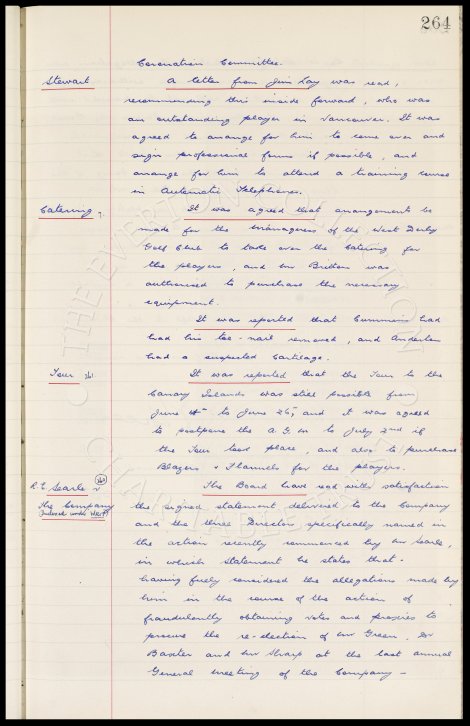 264
Coronation Committee.
Stewart A letter from Jim Lay was read,
recommending this inside forward, who was
an outstanding player in Vancouver. It was
agreed to arrange for him to come over and
sign professional forms if possible, and
arrange for him to attend a training course
in Automatic Telephones.
Catering It was agreed that arrangements be
made for the Manageress of the West Derby
Gold Club to take over the catering for
the players, and Mr Britton was
authorised to purchase the necessary
equipment.
It was reported that Cummins had
had his toe-nail removed, and Anderton
had a suspected cartilage.
Tour 261 It was reported that the Tour to the
Canary Islands was still possible from
June 4th to June 26, and it was agreed
to postpone the A.G.M to July 2nd if
the Tour took place, and also to purchase
Blazers & Flannels for the players.
R.E. Searle v The Board have read with satisfaction
The Company the signed statement delivered to the Company
and the three Director specifically named in
the action recently commenced by Mr Searle,
in which statement he states that -
having fully considered the allegations made by
him in the course of the action of
fraudulently obtaining votes and proxies to
procure the re-election of Mr Green, Dr
Baxter and Mr Sharp at the last annual
General Meeting of the Company -
THE EVERTON COLLECTION
CHARITABLE TRUST